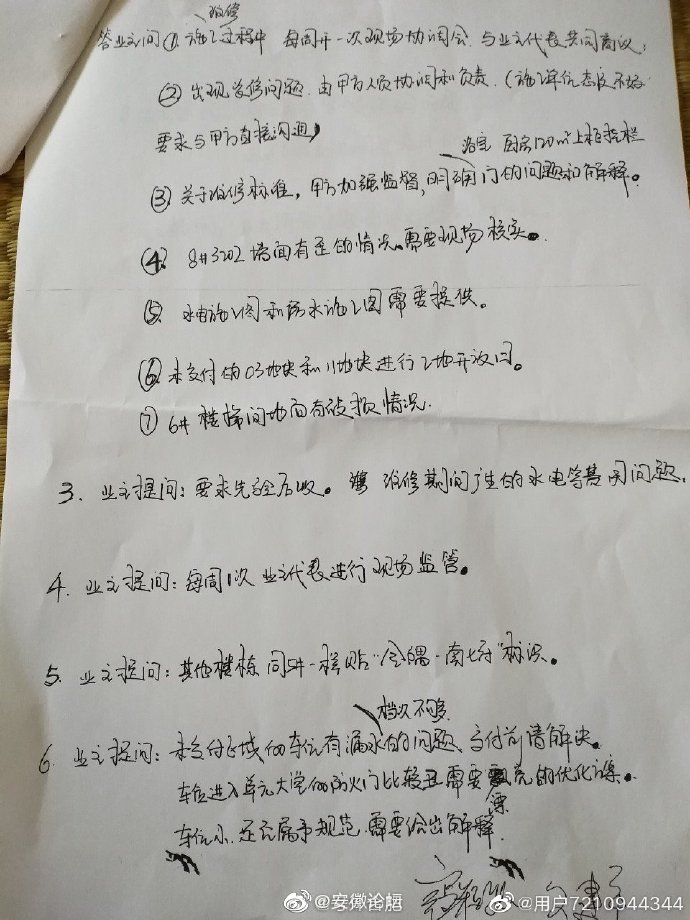 维修
答业主问 ① 施工过程中 每周开一次现场协调会 与业主代表共同商议;
② 出现维修问题 由甲方人员协调和负责.(施工单位态度不好
要求与甲方直接沟通)
浴室 厨房120m²上柜
③ 关于维修标准,甲方加强监督,明确门的问题和解释。
④ 8#3202墙面有歪的情况。需要现场核实。
⑤ 水电施工图和防水施工图需要提供。
⑥ 未交付的03地块和11地块进行工地开放日。
⑦ 6#楼梯间地面有破损情况.
3. 业主提问:要求先验后收。维修期间产生的水电等费用问题.
4. 业主提问:每周1次业主代表进行现场监管。
5. 业主提问:其他楼栋同5#一样贴"金隅·南七府"标识。
档次不够
6. 业主提问:未交付区域的车位有漏水的问题、交付前请解决。
车位进入单元大堂的防火门比较丑需要 的优化
车位小. 是否属于规范 需要给出解释
@安徽论坛
@用户7210944344